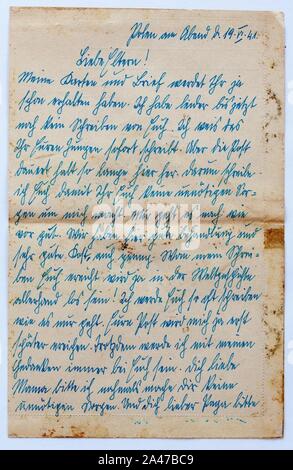 Polen am Abend d. 19.VI.41.
Liebe Eltern!
Meine Karten und Brief werdet Ihr ja
schon erhalten haben. Ich habe leider bis jetzt
noch kein Schreiben von Euch. Ich weis das
Ihr Euren Jungen sofort schreibt. Aber die Post
dauert halt so lange hier her. Darum schreibe
ich Euch damit Ihr Euch keine unnötigen Sor-
gen um mich macht. Mir geht es nach wie
vor gut. Wir haben hier gute und
sehr gute Kost, auch genug. Wenn mein Schrei-
ben Euch erreicht wird ja in der Weltgeschichte
allerhand los sein! Ich werde Euch so oft schreiben
wie es nur geht. Eure Post wird mich ja erst
später erreichen. Trotzdem werde ich mit meinen
Gedanken immer bei Euch sein. Dich liebe
Mama bitte ich nochmals mache dir keine
unnötigen Sorgen. Und dich lieber Papa bitte
alamy
Image ID: 2A47BC9
www.alamy.com